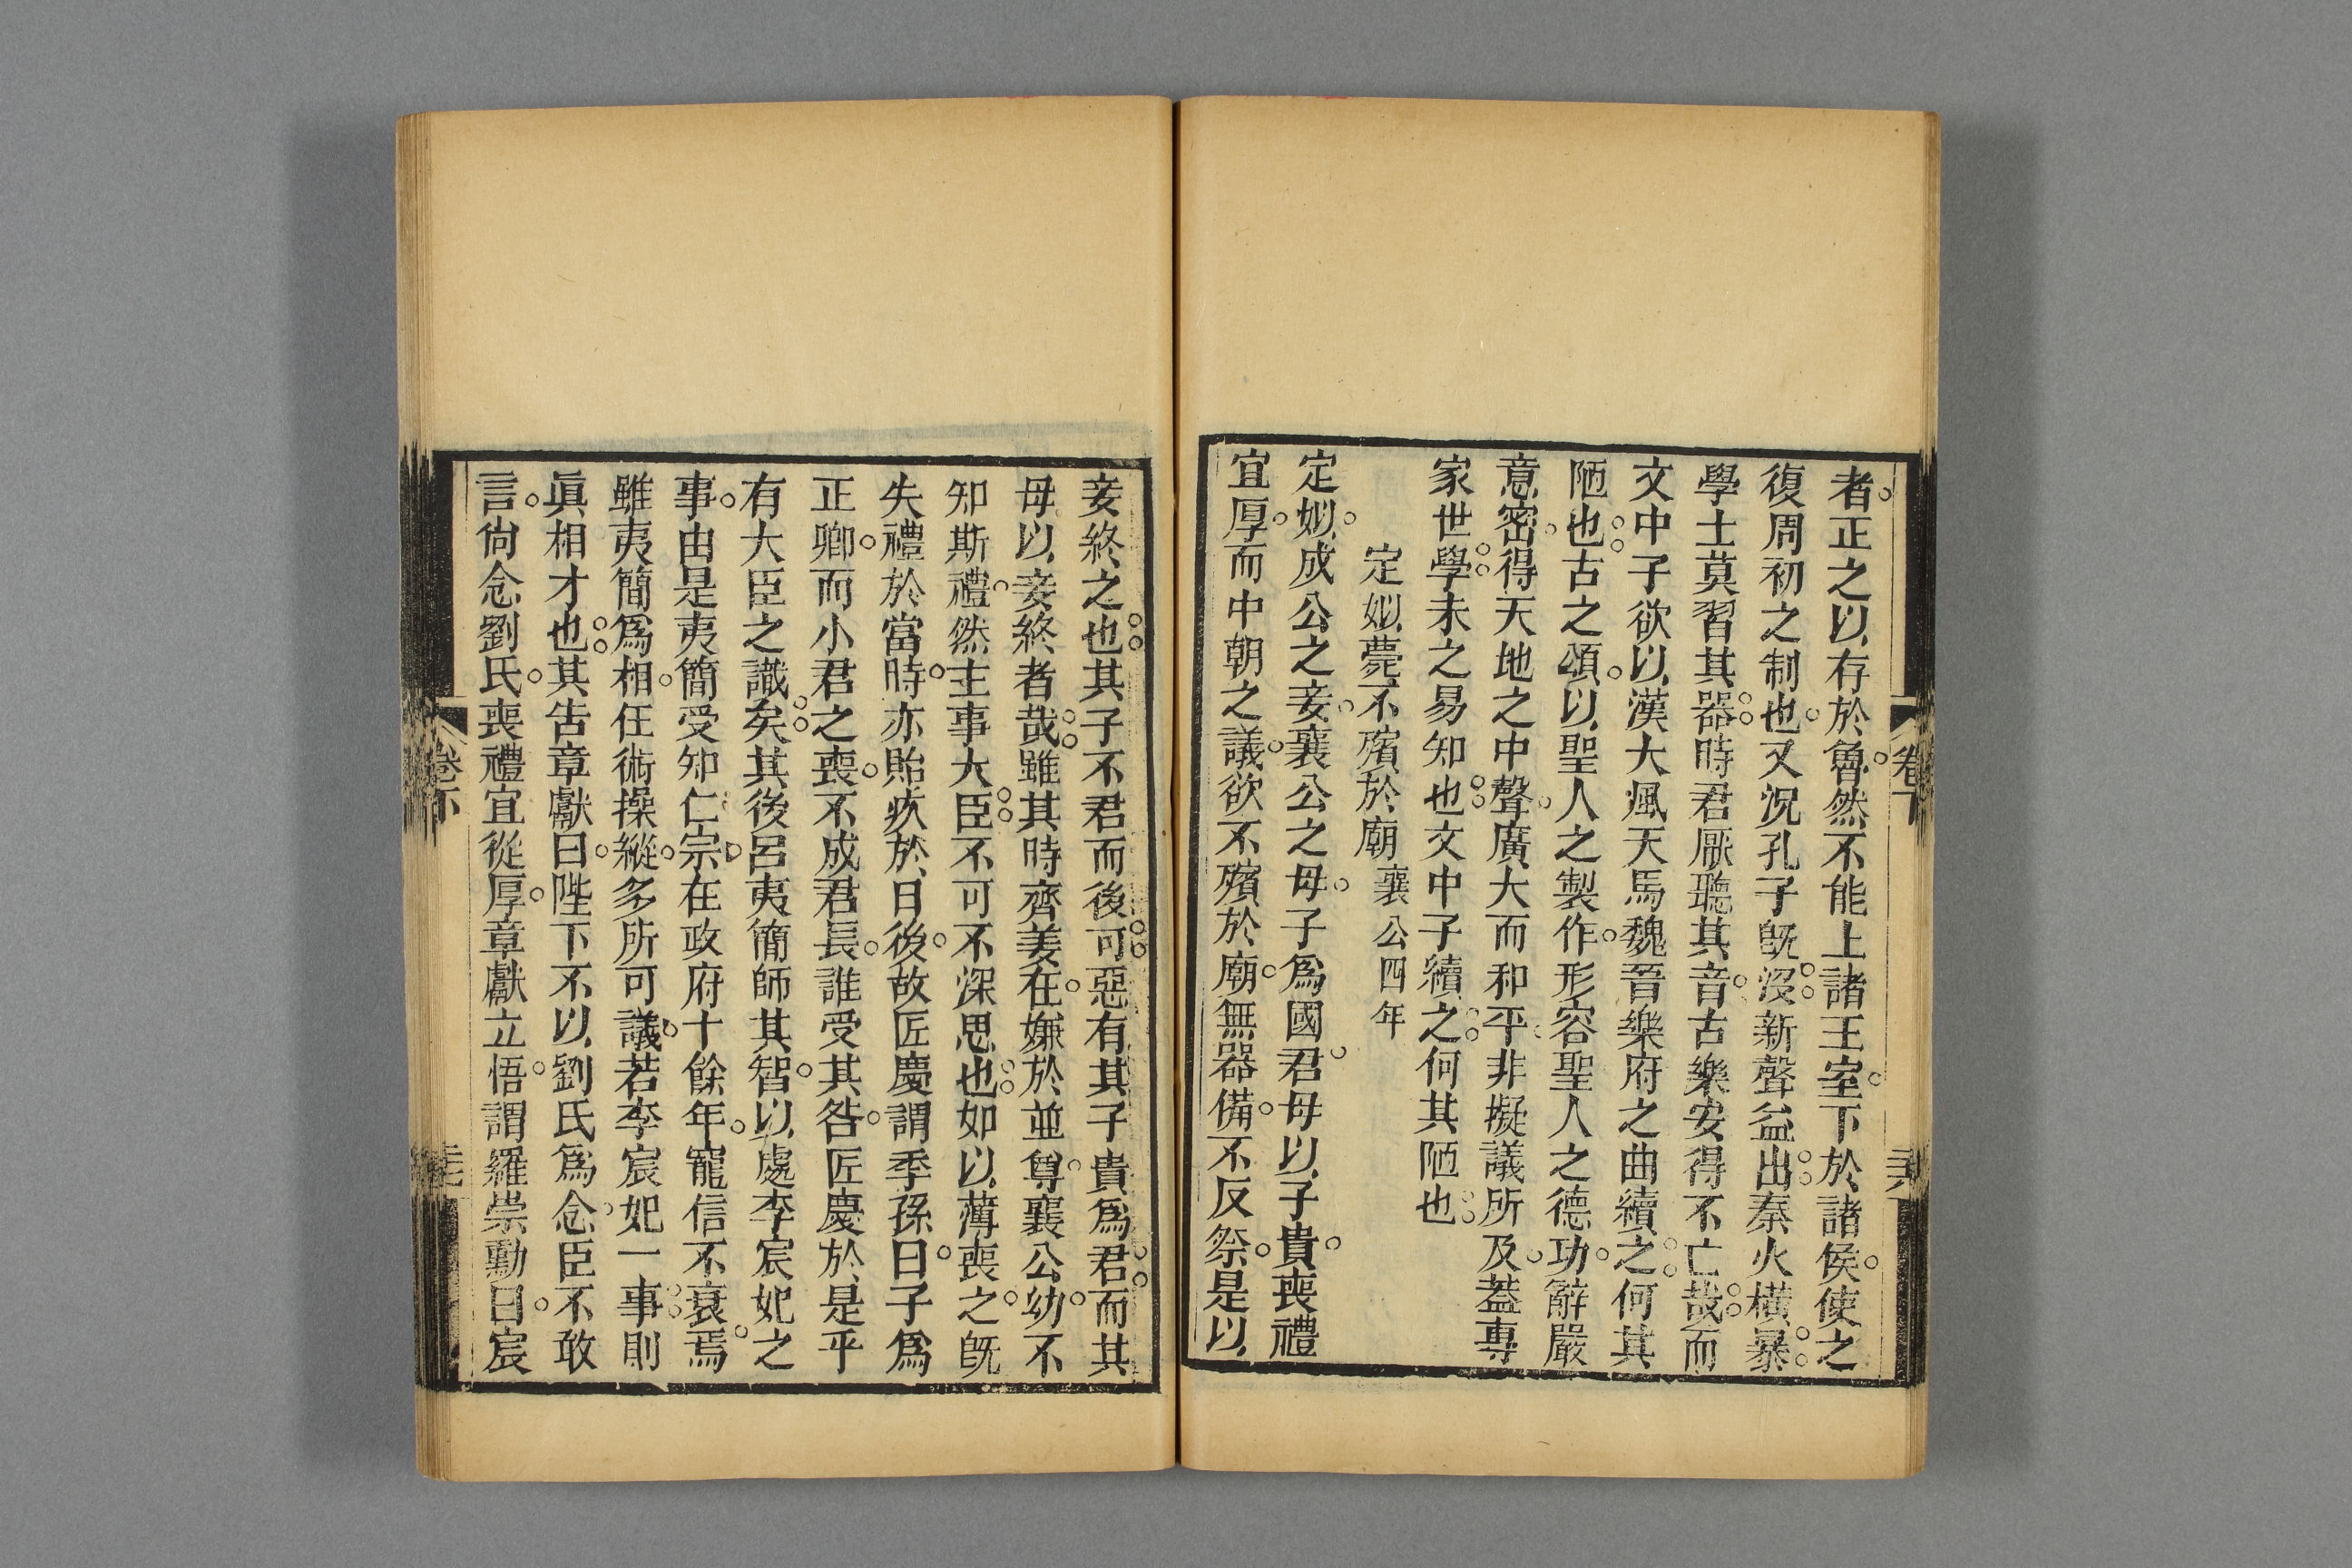 者正之以存於魯然不能上諸王室下於諸侯使之
復周初之制也又況孔子旣沒新聲益出秦火橫暴
學士莫習其器時君厭聽其音古樂安得不亡哉而
文中子欲以漢大風天馬魏晉樂府之曲續之何其
陋也古之頌以聖人之製作形容聖人之德功辭嚴
意密得天地之中聲廣大而和平非擬議所及蓋專
家世學未之易知也文中子續之何其陋也
定姒薨不殯於廟襄公四年
定姒成公之妾襄公之母子爲國君母以子貴喪禮
宜厚而中朝之議欲不殯於廟無器備不反祭是以
妾終之也其子不君而後可惡有其子貴爲君而其
母以妾終者哉雖其時齊姜在嫌於並尊襄公幼不
知斯禮然主事大臣不可不深思也如以薄喪之旣
失禮於當時亦貽疚於日後故匠慶謂季孫曰子爲
正卿而小君之喪不成君長誰受其咎匠慶於是乎
有大臣之識矣其後呂夷簡師其智以處李宸妃之
事由是夷簡受知仁宗在政府十餘年寵信不衰焉
雖夷簡爲相任術操縱多所可議若李宸妃一事則
眞相才也其告章獻曰陛下不以劉氏爲念臣不敢
言尙念劉氏喪禮宜從厚章獻立悟謂羅崇勳曰宸
卷下
卷下